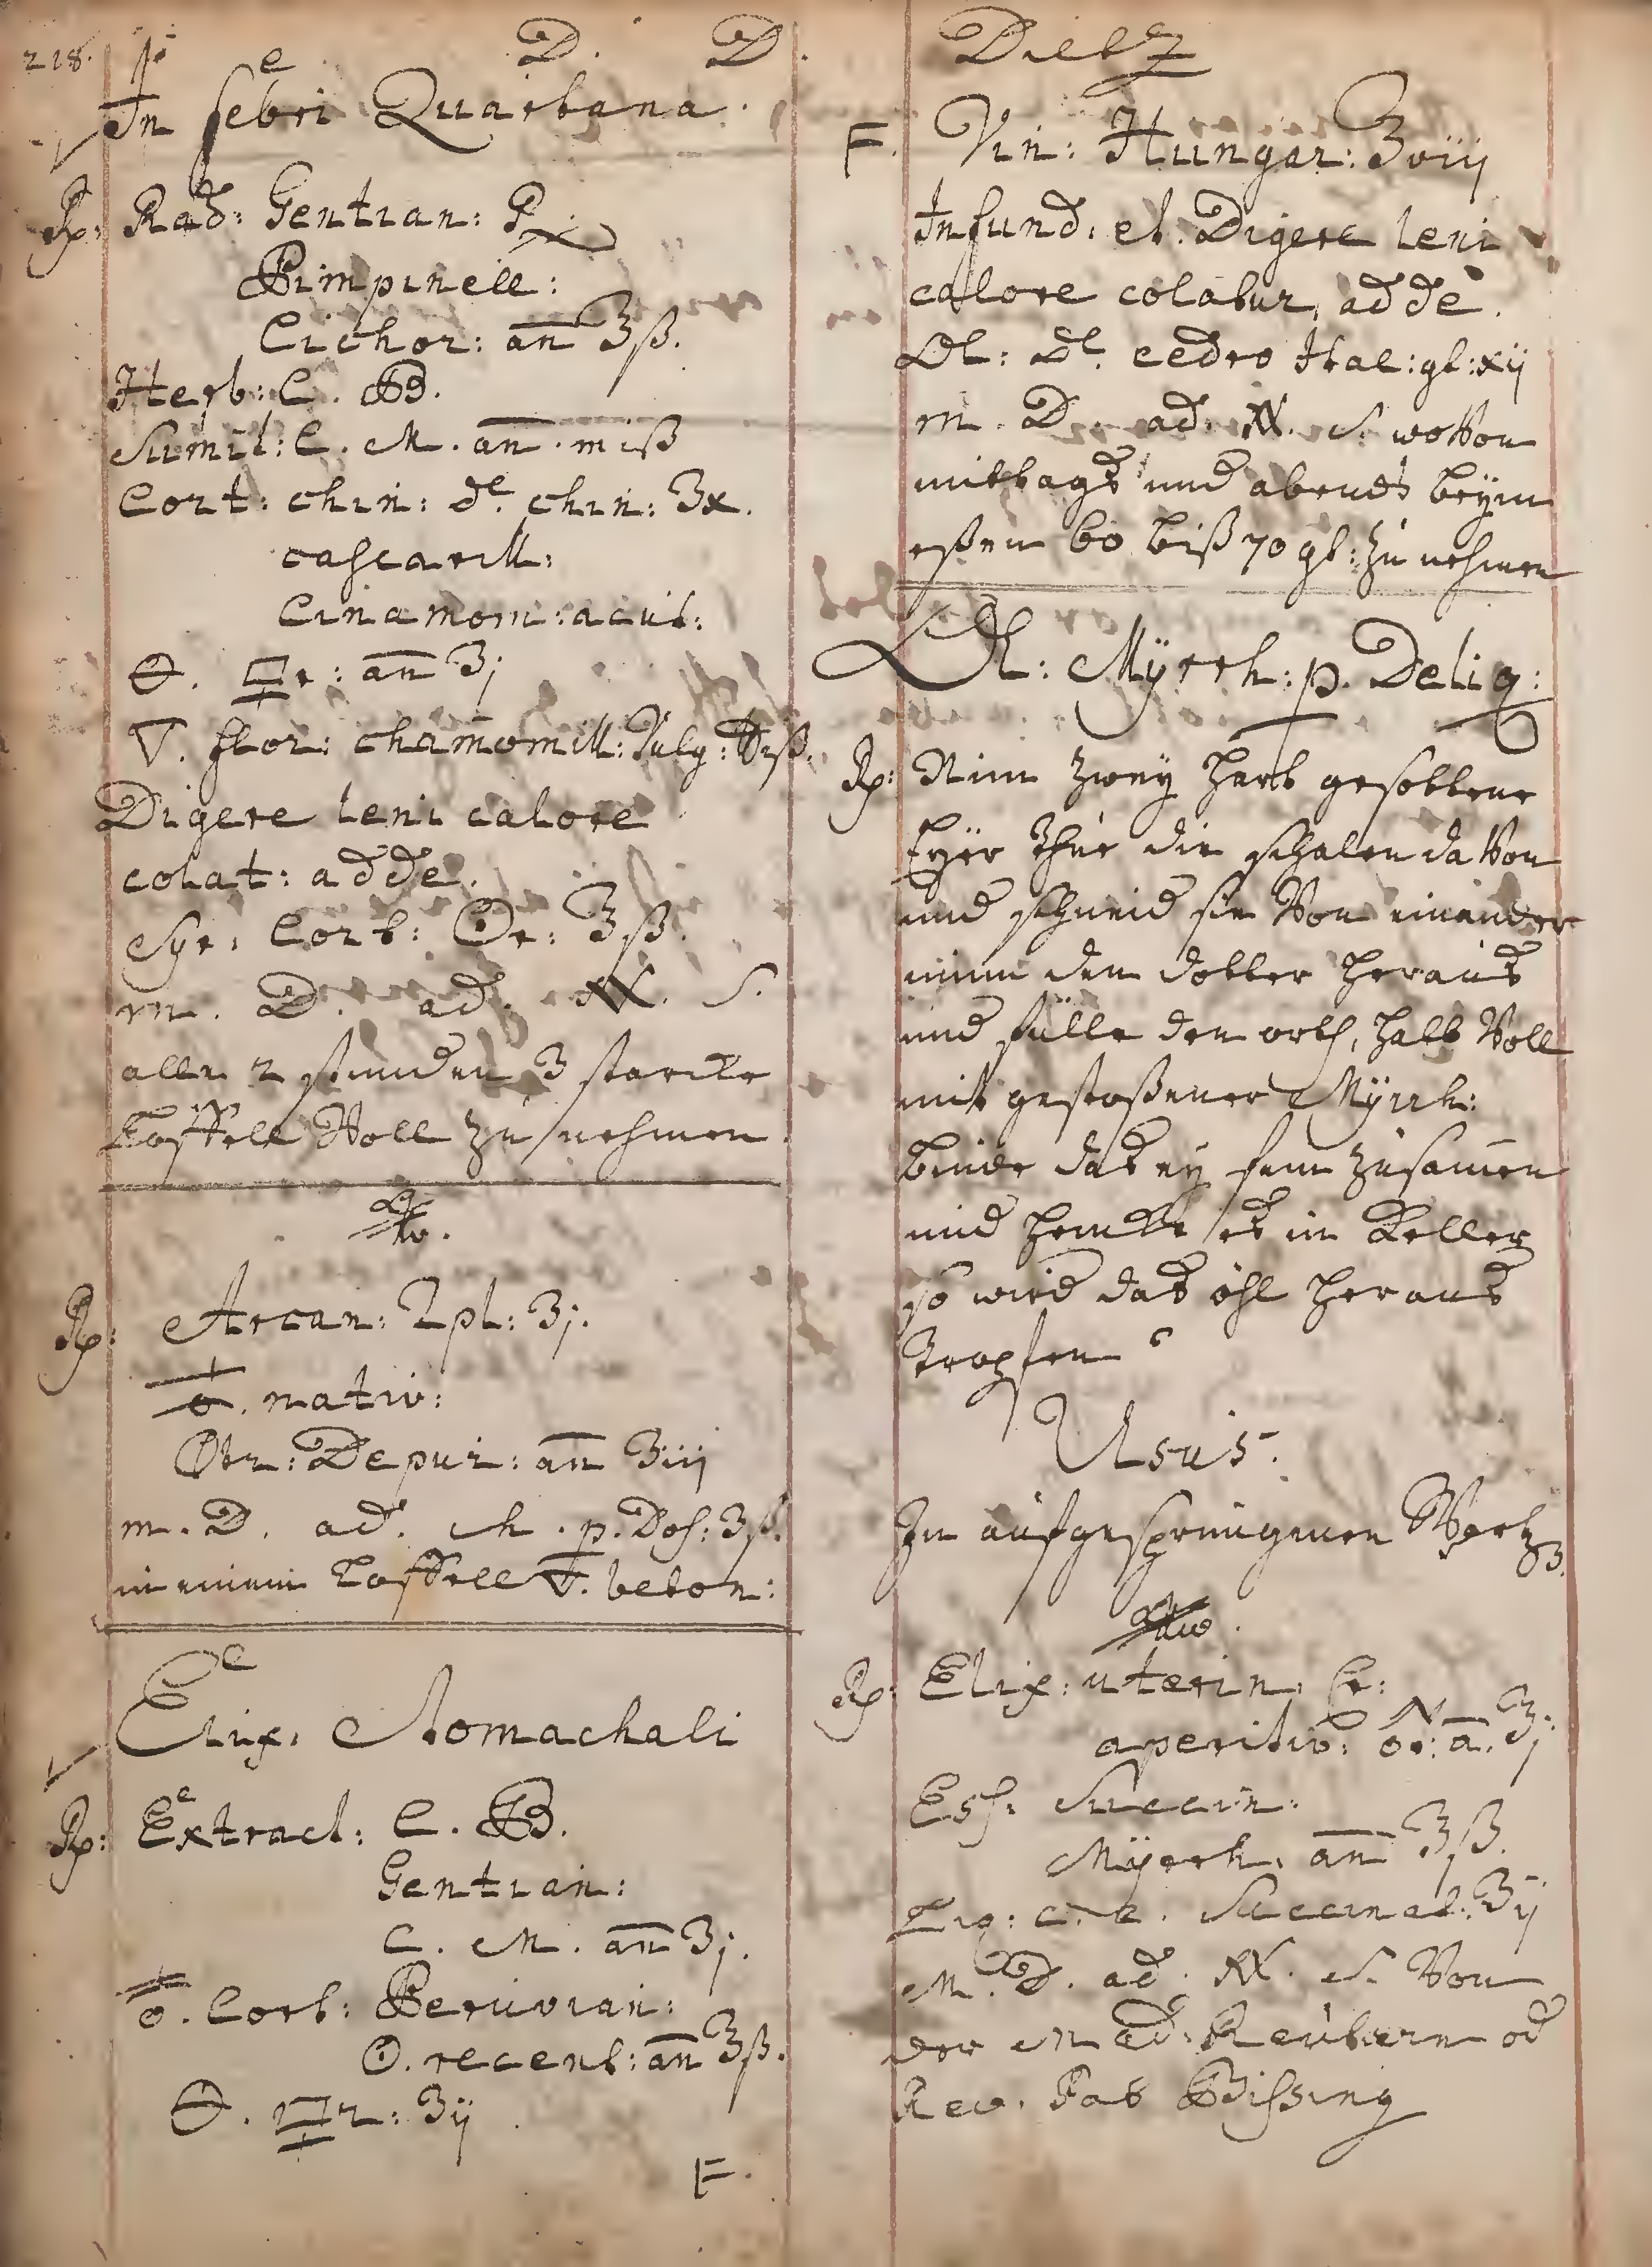 218.
D. D. Dietz
In febri Quartana.
Rp: Rad: Gentian:
Pimpinell:
Cichor: an ʒß.
Herb: C. B.
Sumit: C. M. an. miß
Cort: chin: de chin: ʒx.
cascarill:
Cinamom: acut:
🜔. an ʒj
▽. flor: chamomill: Vulg:
Digere leni calore
colat: adde.
Syr: Cort: Or: ℥ß.
m. D. ad. S.
alle 2 stunden 3 starcke
Löffell Voll zu nehmen.
Rp: Arcan: Dpl: ʒj.
nativ:
Depur: an ʒiij
m. D. ad. ch. p. Dos: ʒß.
in einem Löffell ▽. beton:
Elix: Stomachali
Rp: Extract: C. B.
Gentian:
C. M. an ʒj.
Cort: Peruvian:
recent: an ℥ß.
ʒij
F.
F. Vin: Hungar: ℥viij
Infund. et. Digere leni
calore colatur, adde.
Ol: de cedro Ital: gt: xij
m. D. ad. S. woVon
mittags und abends beÿm
eßen 60 biß 70 gt: zu nehmen
Ol: Mÿrrh: p. Deliq:
Rp: Nim zweÿ hart gesottene
Eÿer thue die schalen daVon
und schneid sie Von einander
nimm den dotter heraus
und fülle den orth, halb Voll
mit gestoßener Mÿrrh:
binde das eÿ fein zusamen
und hencke es im Keller
so wird das öhl heraus
tropfen
Usus.
In aufgesprungenen
Rp: Elix: uterin. Cr:
aperitiv: a. ʒj
Ess: Succin:
Mÿrrh. an ʒß.
Liq: c. c. Succinat: ʒij
M. D. ad. S. Von
der
Rev. Pat Gissing